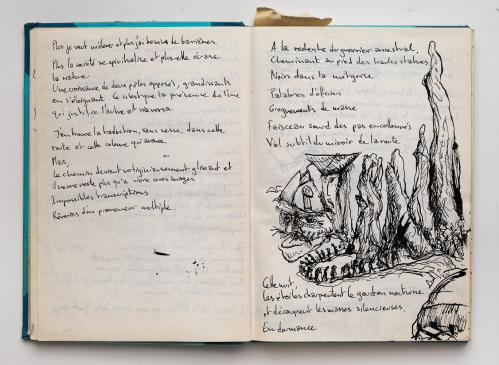 Plus je veux m'élever et plus j'ai besoin de barrières.
Plus la société se spiritualise et plus elle écrase
la nature.
Une croissance de deux pôles opposés, grandissants
en s'éloignant. Ce n'est que la présence de l'une
qui justifie l'autre et viceversa.
J'en trouve la traduction, sans cesse, dans cette
route et cette colonne qui avance.
Mais,
le chemin devient vertigineusement glissant et
il ne me reste plus qu'à vivre mes images
Impossibles transcriptions
Rêveries d'un promeneur multiple.
A la recherche du guerrier ancestral,
Cheminant au pied des hautes statues,
Noirs dans la
Palabres d'officiers
Grognements de masse
Faisceau sourd des pas encollonnés
Viol subtil du miroir de la route
Cette nuit,
Les étoiles charpentent le goudron nocturne
et découpent les masses silencieuses,
En dormance